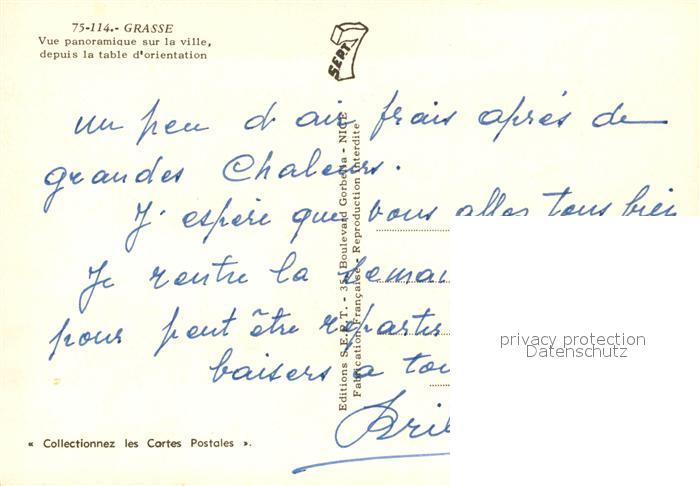 75-114.- GRASSE
Vue panoramique sur la ville,
depuis la table d'orientation
SEPT
un peu d'air frais après de
grandes Chaleurs.
J'espère que vous allez tous bien
Je rentre la semai
pour peut être repartir
baisers a tou
Editions S.E.P.T. - 35, Boulevard Gorbella - NICE
Fabrication Française - Reproduction Interdite
« Collectionnez les Cartes Postales ».
privacy protection
Datenschutz